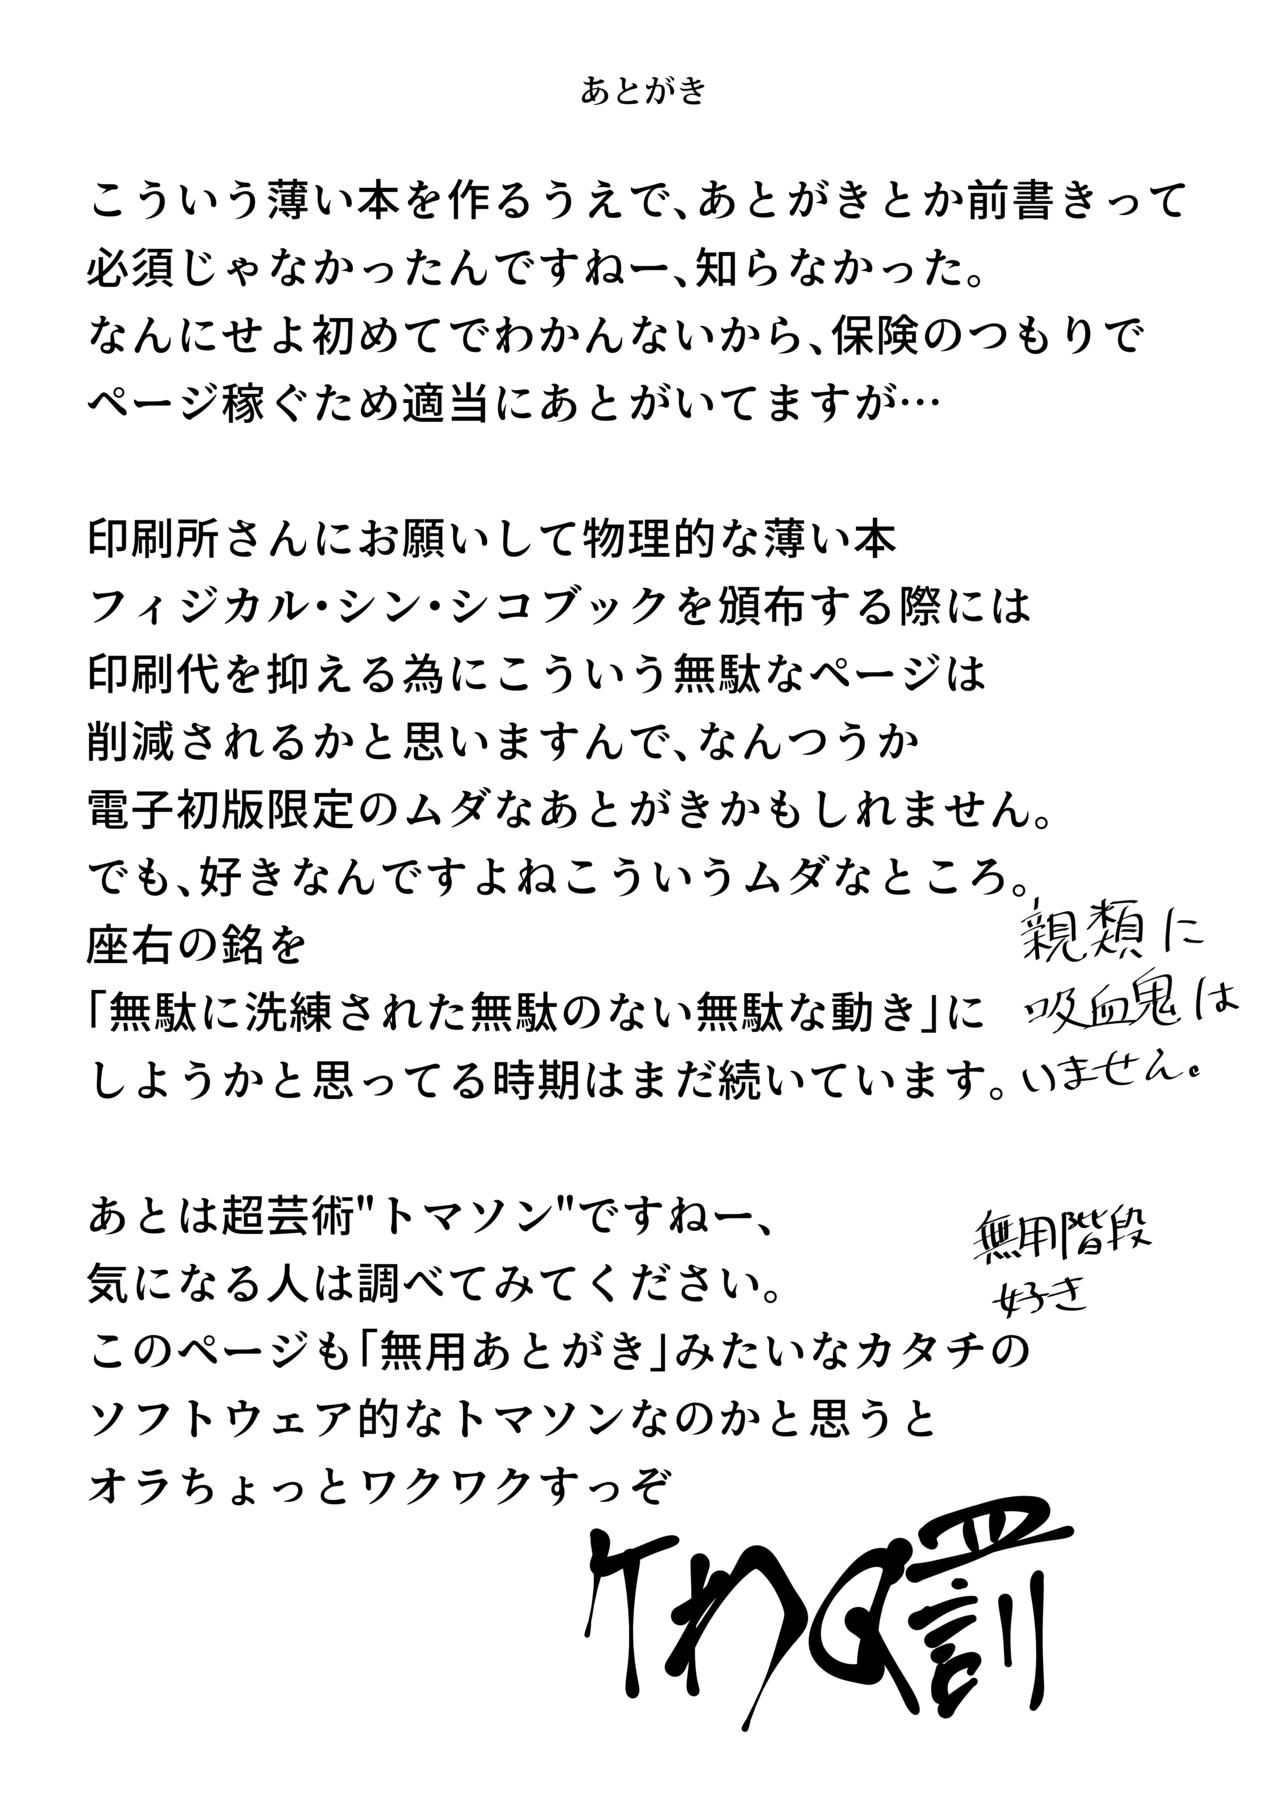 あとがき
こういう薄い本を作るうえで、あとがきとか前書きって
必須じゃなかったんですねー、知らなかった。
なんにせよ初めてでわかんないから、保険のつもりで
ページ稼ぐため適当にあとがいてますが…
印刷所さんにお願いして物理的な薄い本
フィジカル・シン・シコブックを頒布する際には
印刷代を抑える為にこういう無駄なページは
削減されるかと思いますんで、なんつうか
電子初版限定のムダなあとがきかもしれません。
でも、好きなんですよねこういうムダなところ。
座右の銘を
「無駄に洗練された無駄のない無駄な動き」に
しようかと思ってる時期はまだ続いています。
親類に
吸血鬼は
いません。
あとは超芸術"トマソン"ですねー、
気になる人は調べてみてください。
無用階段
好き
このページも「無用あとがき」みたいなカタチの
ソフトウェア的なトマソンなのかと思うと
オラちょっとワクワクすっぞ